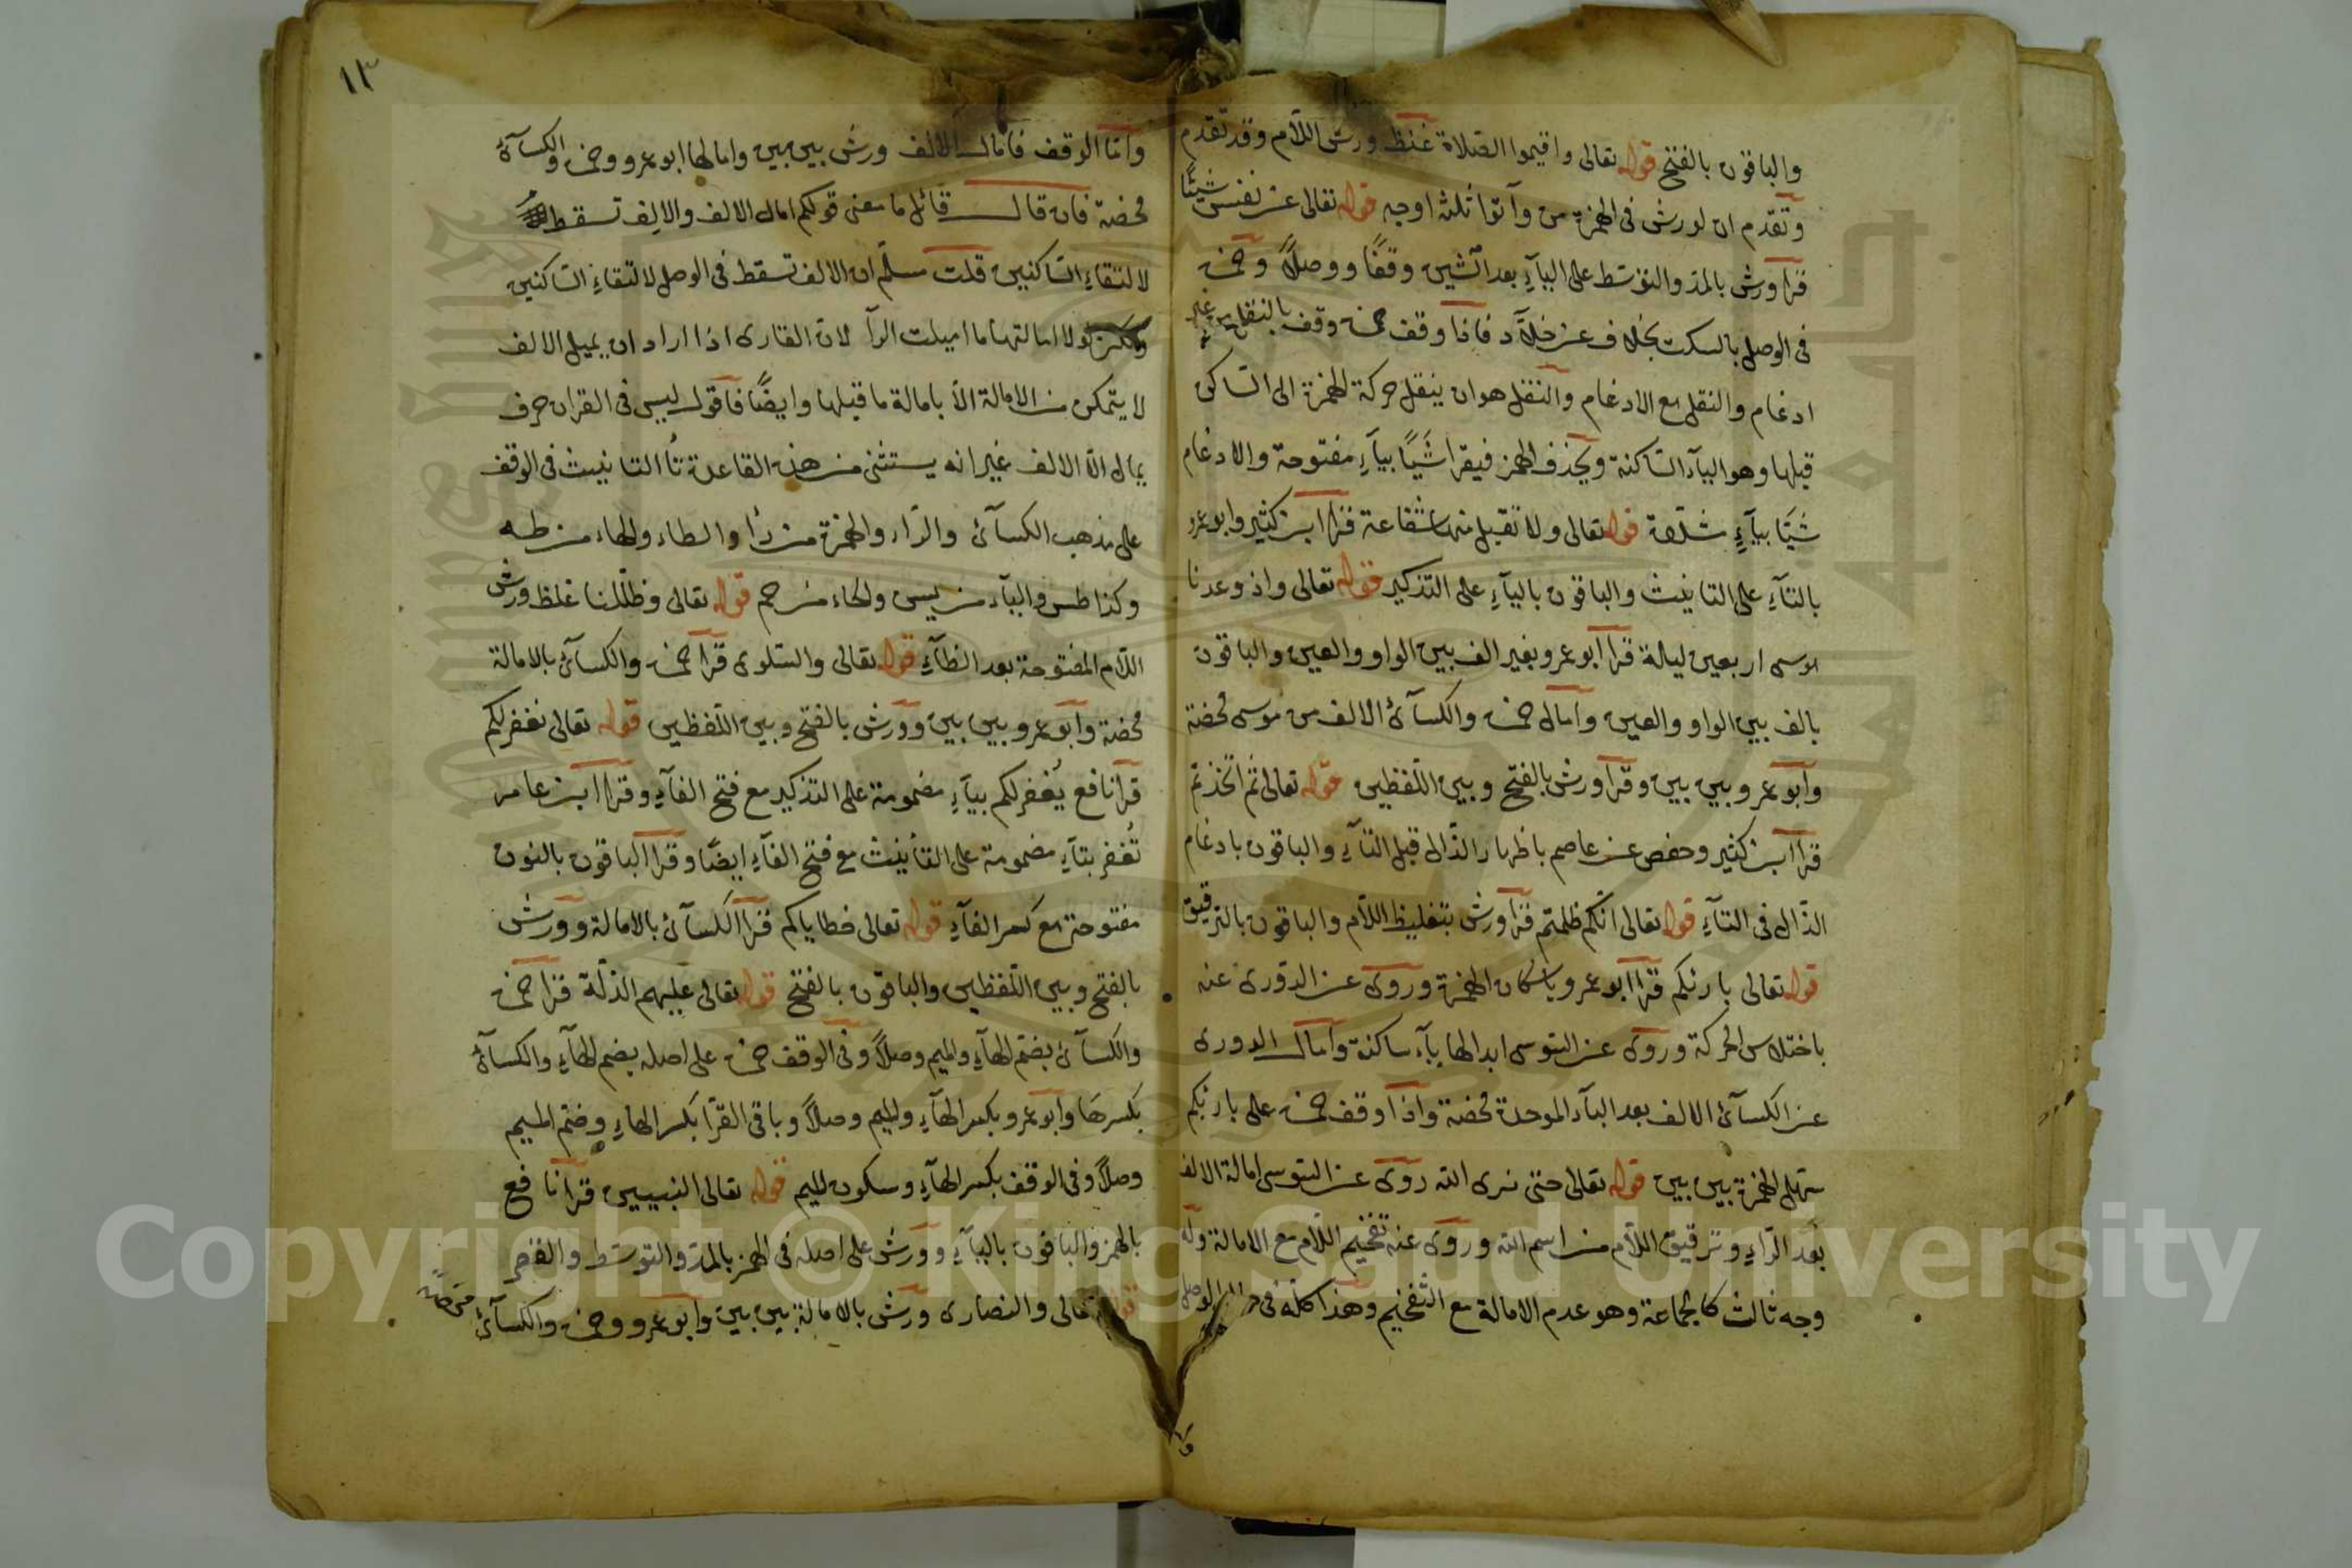 والباقون بالفتح قوله تعالى واقيموا الصلاة غلظ ورش اللام وقد تقدم
وتقدم ان لورش فى الهمزة من وآتوا ثلثه اوجه قوله تعالى عن نفس شيئًا
قرا ورش بالمد والتوسط على اليآءِ بعد الشين وقفًا ووصلاً وحمزة
فى الوصل بالسكت بخلاف عن خلاَّد فاذا وقف حمزة وقف بالنقل من غير
ادغام والنقل مع الادغام والنقل هو ان ينقل حركة الهمزة الى الساكن
قبلها وهو اليآء الساكنة ويحذف الهمز فيقرا شَيًا بيآءِ مفتوحة والادغام
شَيًّا بيآءٍ مشدّدة قوله تعالى ولا تقبل منها شفاعة قرا ابن كثير وابو عمرو
بالتآءِ على التانيث والباقون باليآءِ على التذكير قوله تعالى واذ وعدنا
موسى اربعين ليلة قرا ابو عمرو بغير الف بين الواو والعين والباقون
بالف بين الواو والعين وامال حمزة والكسآئ الالف من موسى محضة
وابو عمرو بين بين وقرا ورش بالفتح وبين اللفظين قوله تعالى ثم اتخذتم
قرا ابن كثير وحفص عن عاصم باظهار الذال قبل التآءِ والباقون بادغام
الذال فى التآءِ قوله تعالى انكم ظلمتم قرا ورش بتغليظ اللام والباقون بالترقيق
قوله تعالى بارئكم قرا ابو عمرو باسكان الهمزة وروى عن الدورى عنه
باختلاس الحركة وروى عن السوسى ابدالها يآء ساكنة وامال الدورى
عن الكسآئ الالف بعد البآء الموحدة محضة واذا وقف حمزة على بارئكم
سهل الهمزة بين بين قوله تعالى حتى نرى الله روى عن السوسى امالة الالف
بعد الرّاءِ وترقيق اللام من اسم الله وروى عنه تفخيم اللام مع الامالة وله
وجه ثالث كالجماعة وهو عدم الامالة مع التفخيم وهذا كله فى الوصل
وا
١٣
وامّا الوقف فامال الالف ورش بين بين وامالها ابو عمرو وحمزة والكسآئ
محضة فان قال قائل ما معنى قولكم امال الالف والالف تسقط
لالتقاءِ الساكنين قلت مسلّم ان الالف تسقط فى الوصل لالتقاءِ الساكنين
ولكن لولا امالتها ما اميلت الرآ لان القارى اذا اراد ان يميل الالف
لا يتمكن من الامالة الاّ بامالة ما قبلها وايضًا فاقول ليس فى القران حرف
يمال الاّ الالف غير انه يستثنى من هذه القاعدة تآ التانيث فى الوقف
على مذهب الكسآئ والرّاء والهمزة من رأا والطاء والهاء من طه
وكذا طس واليآء من يس والحاء من حم قوله تعالى وظلّلنا غلظ ورش
اللام المفتوحة بعد الظآءِ قوله تعالى والسلوى قرا حمزة والكسآئ بالامالة
محضة وابو عمرو بين بين وورش بالفتح وبين اللفظين قوله تعالى نغفر لكم
قرا نافع يُغفر لكم بيآءِ مضمومة على التذكير مع فتح الفآءِ وقرا ابن عامر
تُغفر بتآءِ مضمومة على التأنيث مع فتح الفآءِ ايضًا وقرا الباقون بالنون
مفتوحة مع كسر الفآءِ قوله تعالى خطاياكم قرا الكسآئ بالامالة وورش
بالفتح وبين اللفظين والباقون بالفتح قوله تعالى عليهم الذلّة قرا حمزة
والكسآئ بضم الهآءِ والميم وصلاً وفى الوقف حمزة على اصله بضم الهآءِ والكسآئ
بكسرها وابو عمرو بكسر الهآءِ والميم وصلاً وباقى القرّا بكسر الهاءِ وضم الميم
وصلاً وفى الوقف بكسر الهآءِ وسكون الميم قوله تعالى النبيين قرا نافع
بالهمز والباقون باليآءِ وورش على اصله فى الهمز بالمد والتوسط والقصر
قوله تعالى والنصارى ورش بالامالة بين بين وابو عمرو وحمزة والكسآئ محضة
Copyright © King Saud University